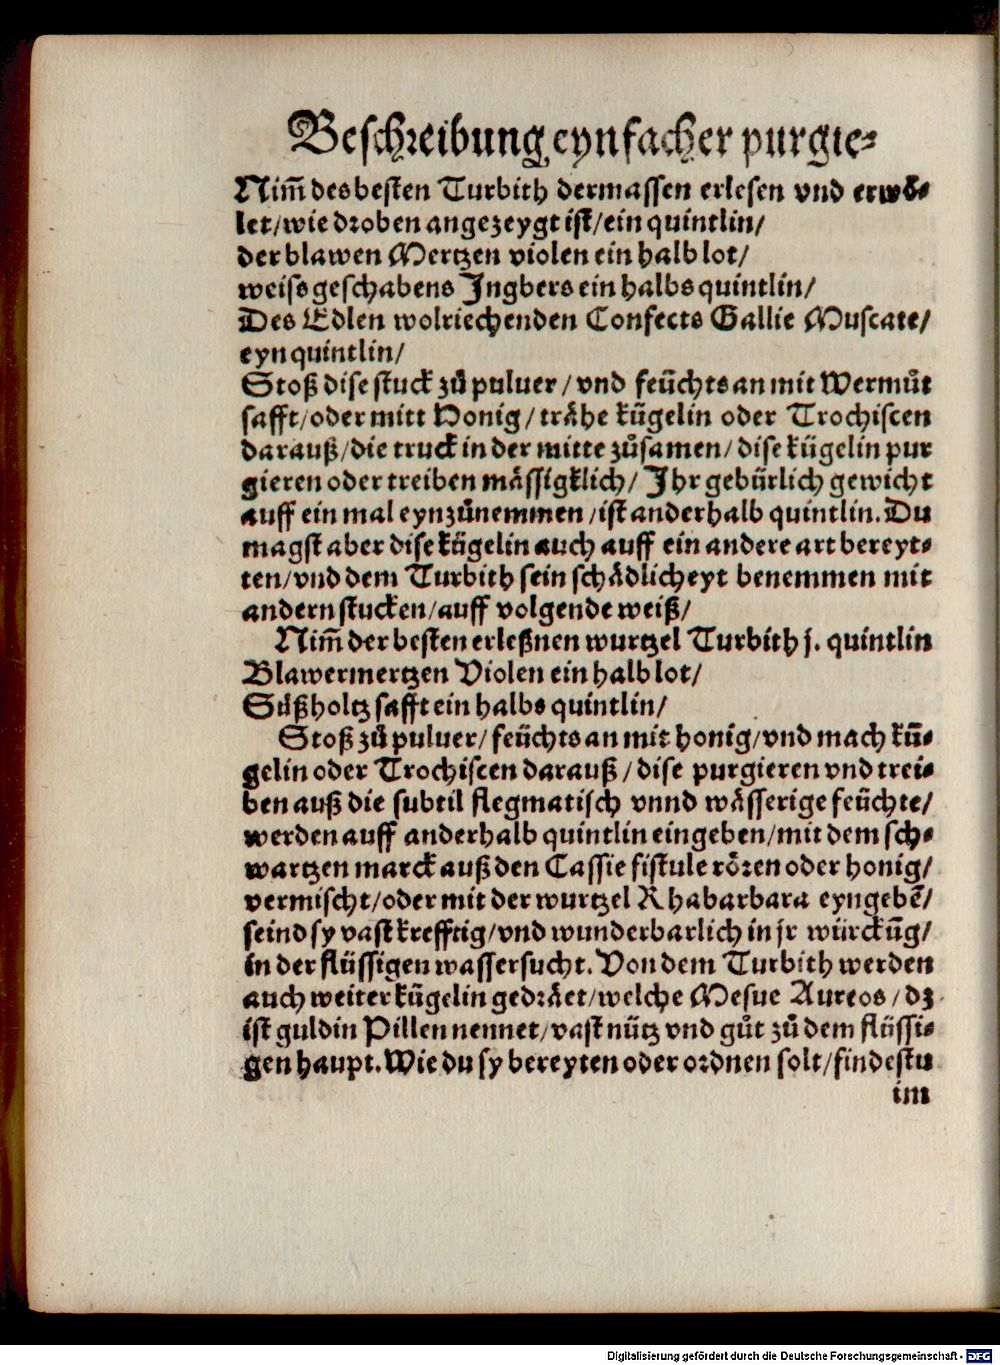 Beschreibung eynfacher purgie⸗
Nim̃ des besten Turbith dermassen erlesen vnd erwoͤ⸗
let/wie droben angezeygt ist/ein quintlin/
der blawen Mertzen violen ein halb lot/
weiss geschabens Ingbers ein halbs quintlin/
Des Edlen wolriechenden Confects Gallie Muscate/
eyn quintlin/
Stoß dise stuck zuͦ puluer/vnd feüchts an mit Wermuͦt
safft/oder mitt Honig/traͤhe kuͤgelin oder Trochiscen
darauß/die truck in der mitte zuͦsamen/dise kügelin pur
gieren oder treiben maͤssigklich/Ihr gebürlich gewicht
auff ein mal eynzuͦnemmen/ist anderhalb quintlin.Du
magst aber dise kuͤgelin auch auff ein andere art bereyt⸗
ten/vnd dem Turbith sein schaͤdlicheyt benemmen mit
andern stucken/auff volgende weiß/
Nim̃ der besten erleßnen wurtzel Turbith j. quintlin
Blawermertzen Violen ein halb lot/
Suͤßholtz safft ein halbs quintlin/
Stoß zuͦ puluer/feüchts an mit honig/vnd mach kuͤ⸗
gelin oder Trochiscen darauß/dise purgieren vnd trei⸗
ben auß die subtil flegmatisch vnnd waͤsserige feüchte/
werden auff anderhalb quintlin eingeben/mit dem sch⸗
wartzen marck auß den Cassie fistule roͤren oder honig/
vermischt/oder mit der wurtzel Rhabarbara eyngebẽ/
seind sy vast krefftig/vnd wunderbarlich in jr würckũg/
in der flüssigen wassersucht.Von dem Turbith werden
auch weiter kügelin gedraͤet/welche Mesue Aureos/dz
ist guldin Pillen nennet/vast nütz vnd guͦt zuͦ dem flüssi⸗
gen haupt.Wie du sy bereyten oder ordnen solt/findestu
im
Digitalisierung gefördert durch die Deutsche Forschungsgemeinschaft - DFG